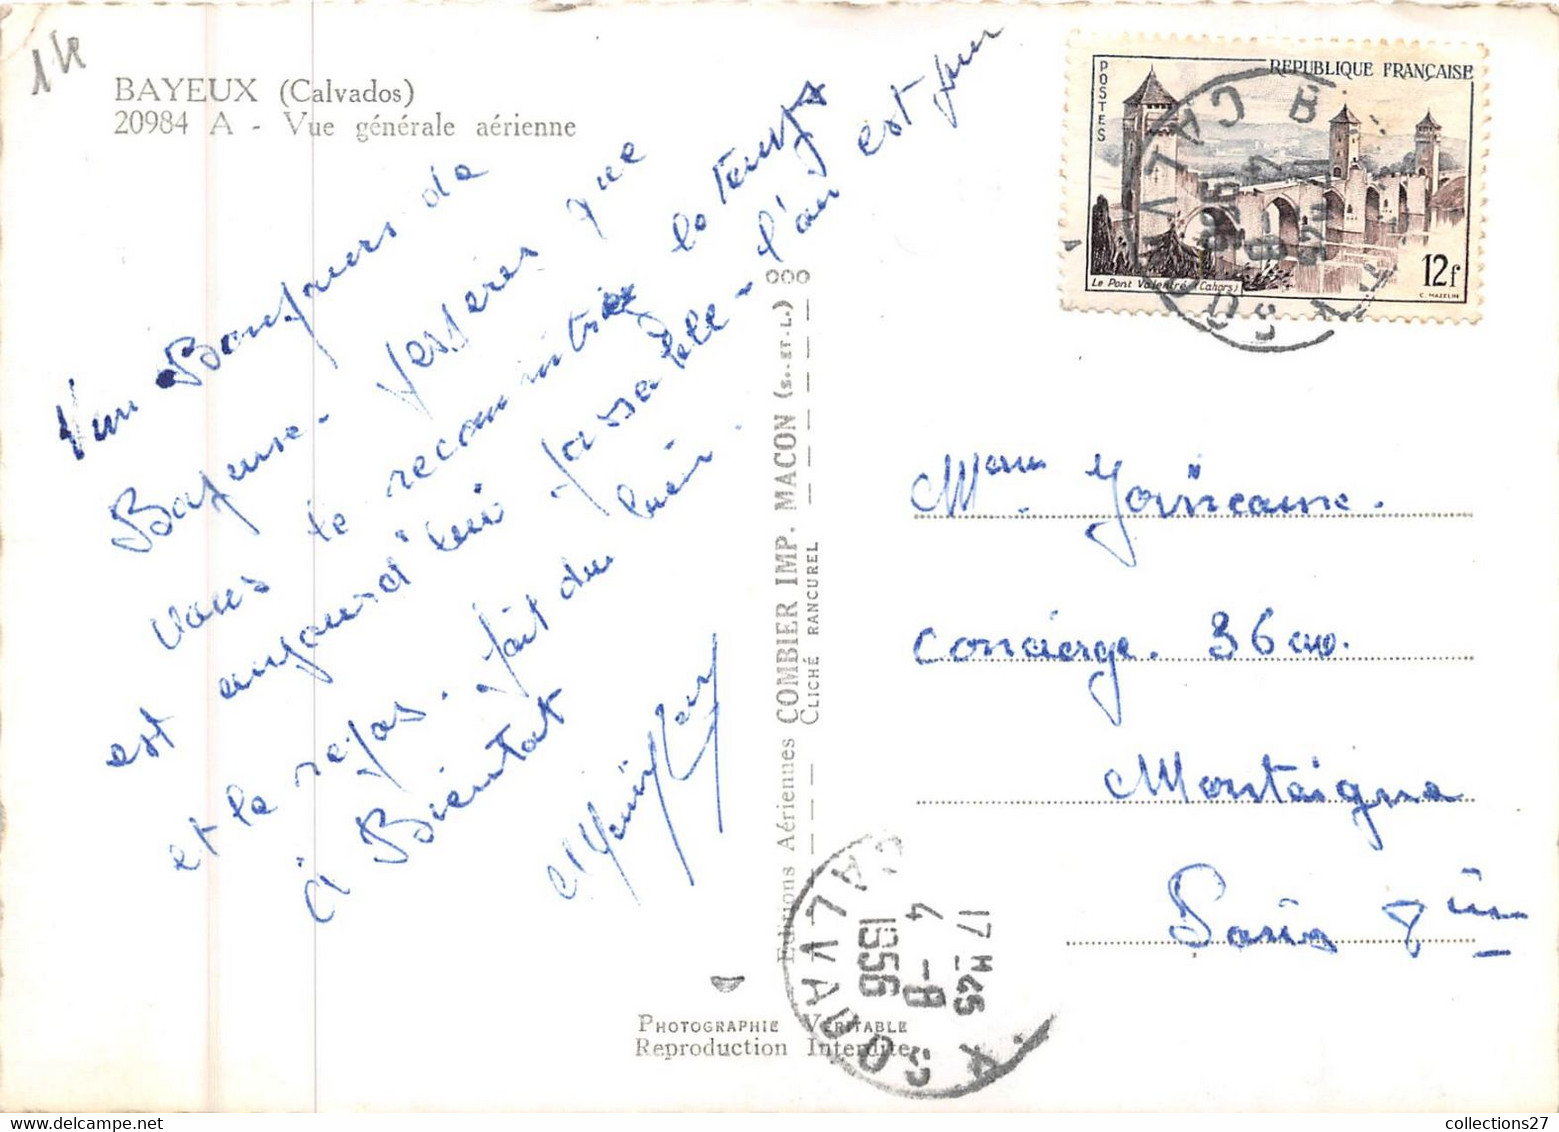 14
BAYEUX (Calvados)
20984 A - Vue générale aérienne
Bonjours de
Bayeux - que
vous le le temps
est aujourd'hui - l'air est pur
et le repas. fait du bien.
à Bientot
Editions Aériennes COMBIER IMP. MACON (S.-ET-L.)
CLICHÉ RANCUREL
PHOTOGRAPHIE VÉRITABLE
Reproduction Interdite
POSTES
REPUBLIQUE FRANÇAISE
Le Pont Valentré (Cahors)
12f
C. MAZELIN
B
CALVADOS
1956
17H45
4 -8
1956
CALVADOS
X
Mme
Concierge. 36 av.
Montaigne
Paris 8ème
collections27